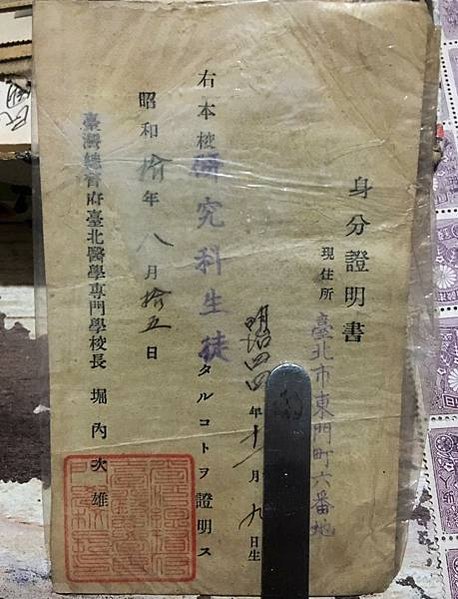 身分證明書
現住所
臺北市東門町六番地
明治四四年十一月九日生
右本校研究科生徒タルコトヲ證明ス
昭和拾年八月拾五日
臺灣總督府臺北醫學專門學校長 堀內次雄